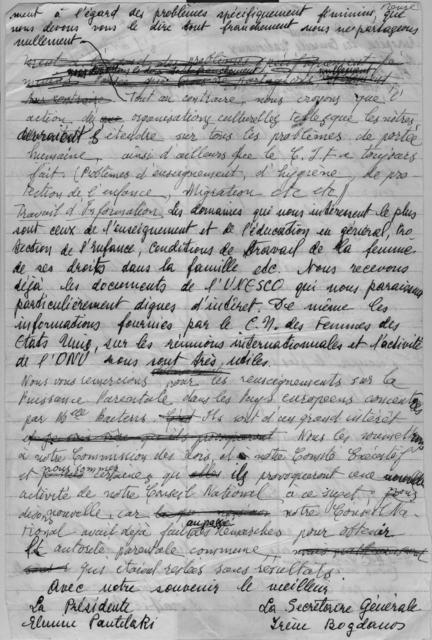 ment à l'égard des problèmes spécifiquement féminins, que
nous devons vous le dire tout franchement nous ne partageons
nullement
Tout au contraire, nous croyons que l'
action, de organisations culturelles telles que les nôtres,
devraient s'étendre sur tous les problèmes de portée
humaine, ainsi d'ailleurs que le C.I.F. a toujours
fait. (Problèmes d'enseignement, d'hygiène, de pro
tection de l'enfance, Migration etc etc)
Travail d'Information. Les domaines qui nous intéressent le plus
sont ceux de l'enseignement et de l'éducation en général, Pro
tection de l'Enfance, conditions de travail de la femme
de ses droits dans la famille etc. Nous recevons
déjà les documents de l'UNESCO qui nous paraissent
particulièrement dignes d'intéret. De même les
informations fournies par le C.N. des Femmes des
Etats Unis, sur les réunions internationales et l'activité
de l'ONU nous sont très utiles.
Nous vous remercions pour les renseignements sur la
Puissance Parentale dans les pays européens
par Mlle Ils sont d'un grand intérêt
Nous les
à notre Commission des lois, et à notre Comité Exécutif
et nous sommes certaines qu' ils provoqueront une nouvelle
activité de notre Conseil National à ce sujet
nouvelle, car notre Conseil Na-
tional avait déjà fait au passé des démarches pour obtenir
l' autorité parentale commune,
qui étaient restées sans résultats.
Avec notre souvenir le meilleur
La Présidente La Secrétaire Générale
Elmine Pantelaki Irène Bogdanos